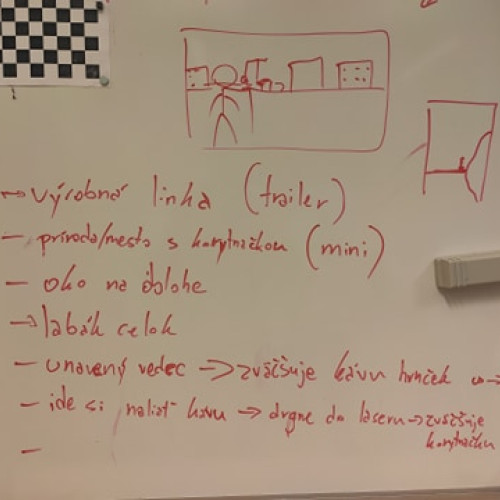 → výrobná linka (trailer)
– príroda/mesto s korytnačkou (mini)
– oko na oblohe
→ labák celok
– unavený vedec → zväčšuje kávu hrnček
– ide si naliať kávu → drgne do laseru → zväčšuje
korytnačku
–